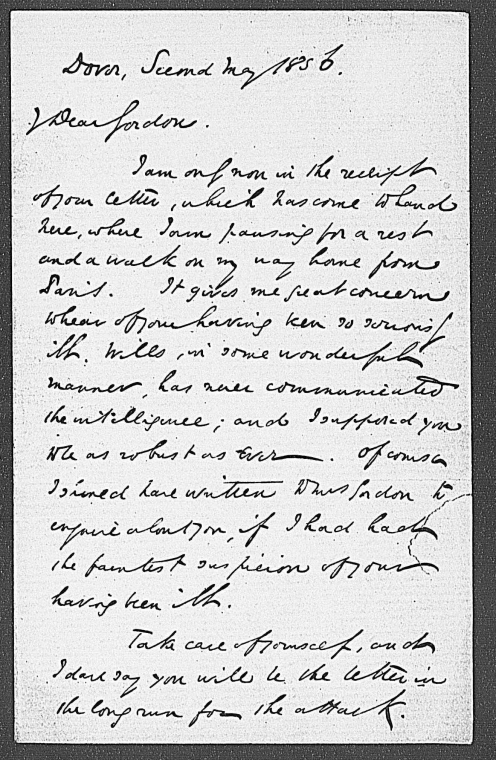 Dover, Second May 1856.
My Dear Gordon.
I am only now in the receipt
of your letter, which has come to hand
here, where I am pausing for a rest
and a walk on my way home from
Paris. It gives me great concern
to hear of your having been so seriously
ill. Wills, in some wonderful
manner, has never communicated
the intelligence; and I supposed you
to be as robust as Ever. Of course
I should have written to Mrs Gordon to
enquire about you, if I had had
the faintest suspicion of your
having been ill.
Take care of yourself, and
I dare say you will be the better in
the long run for the attack.